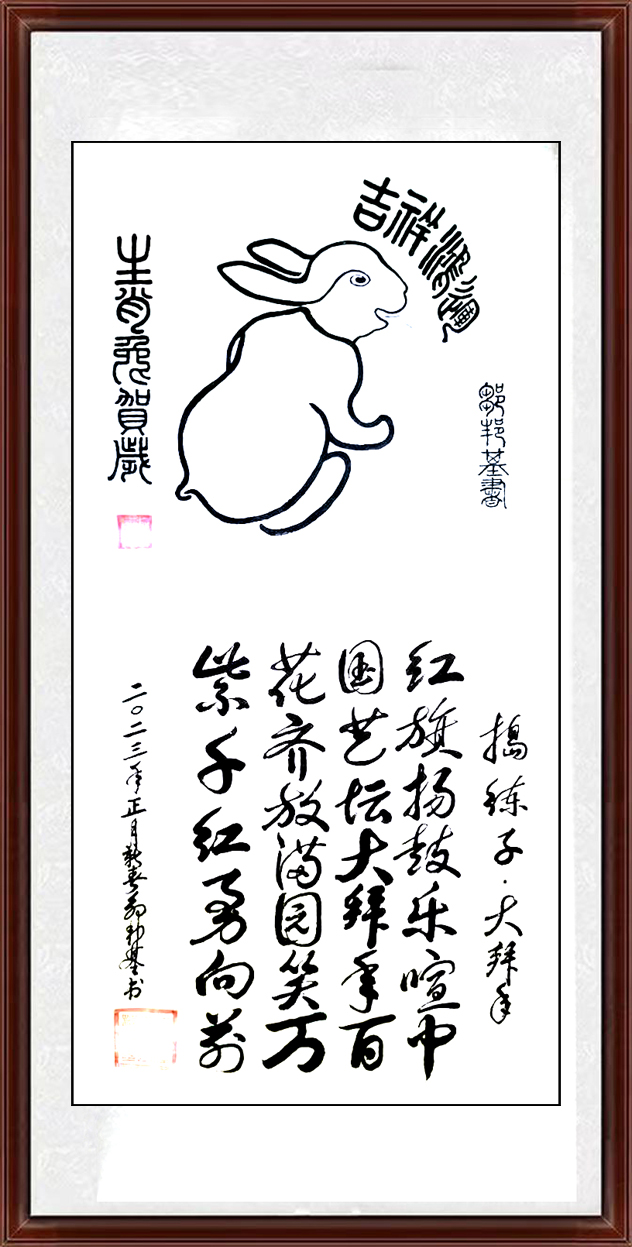 吉祥鸿运
生肖兔贺歳
鄒邦基書
捣练子·大拜年
红旗扬鼓乐喧中
国艺坛大拜年百
花齐放满园笑万
紫千红勇向前
二〇二三年正月新春邹邦基书